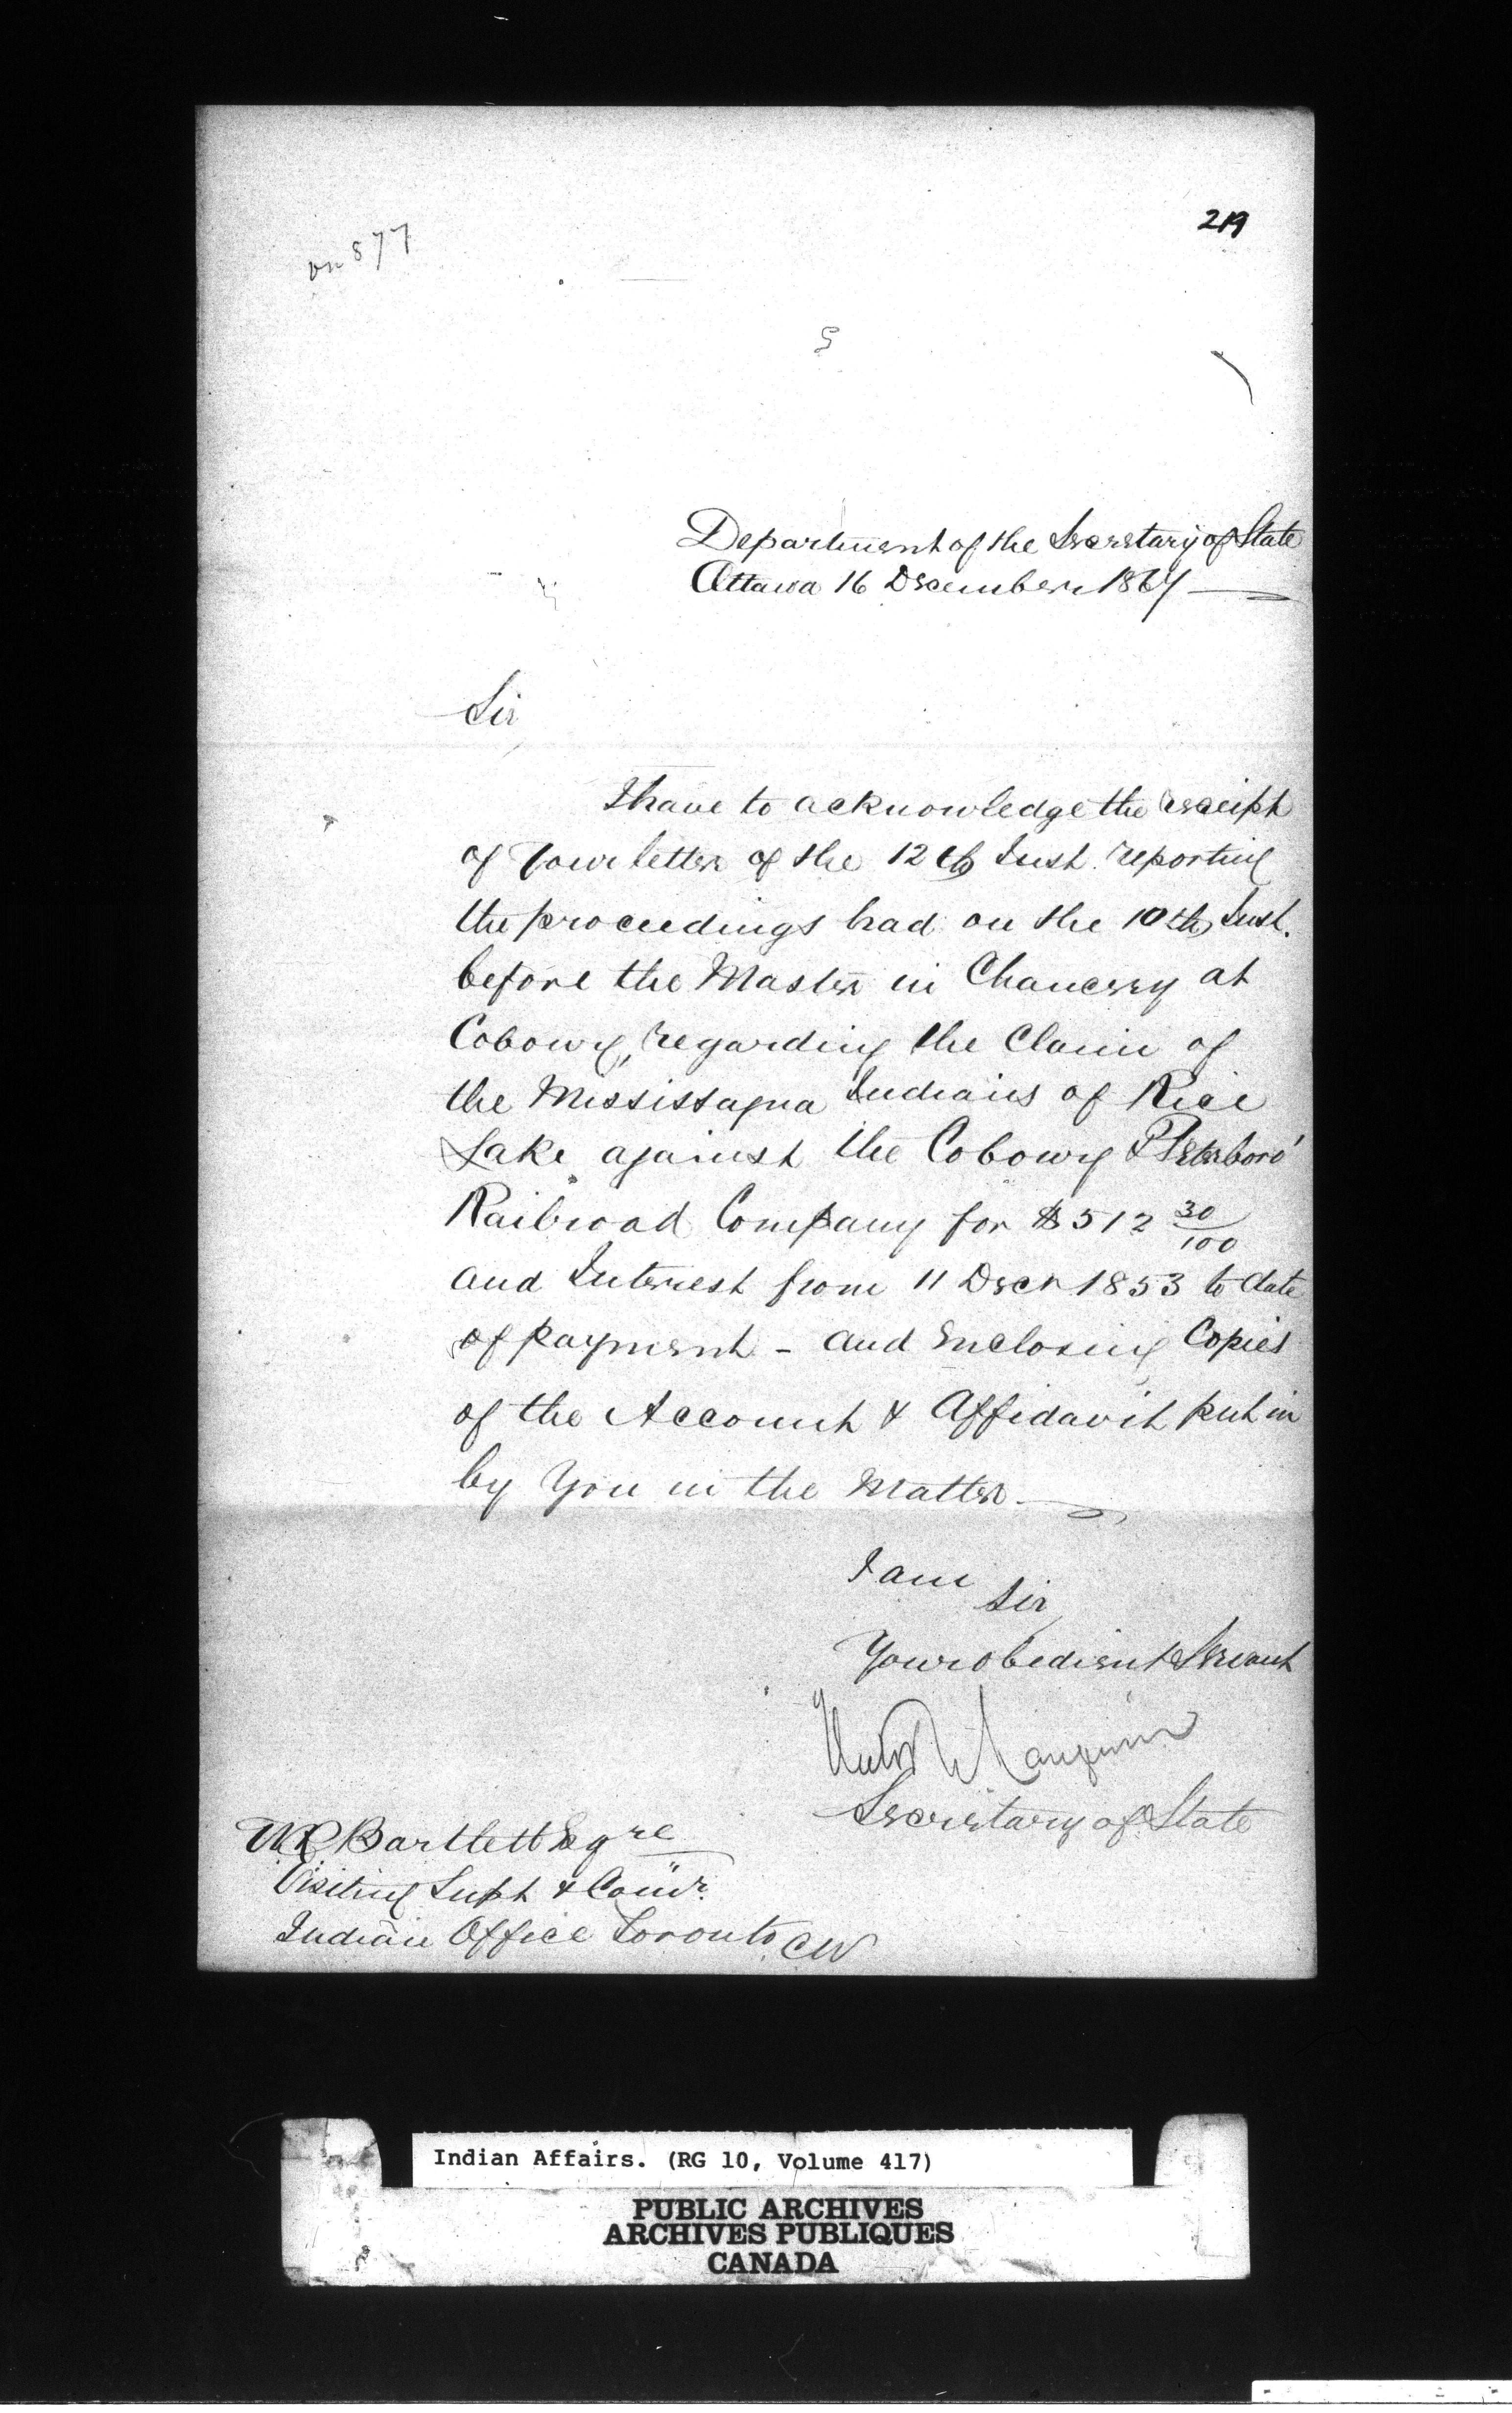 219
on 877
5
Department of the Secretary of State
Ottawa 16 December 1867
Sir
I have to acknowledge the receipt
of Your letter of the 12th Inst. reporting
the proceedings had on the 10th Inst.
before the Master in Chancery at
Cobourg, regarding the Claim of
the Mississagua Indians of Rice
Lake against the Cobourg & Peterboro'
Railroad Company for $512 30/100
and Interest from 11 Decr 1853 to date
of payment - and Enclosing Copies
of the Account & Affidavit put in
by You in the Matter
I am
Sir
Your obedient Servant
Hector L Langevin
Secretary of State
WR Bartlett Esqre
Visiting Supt & Comr.
Indian Office Toronto CW
Indian Affairs. (RG 10, Volume 417)
PUBLIC ARCHIVES
ARCHIVES PUBLIQUES
CANADA